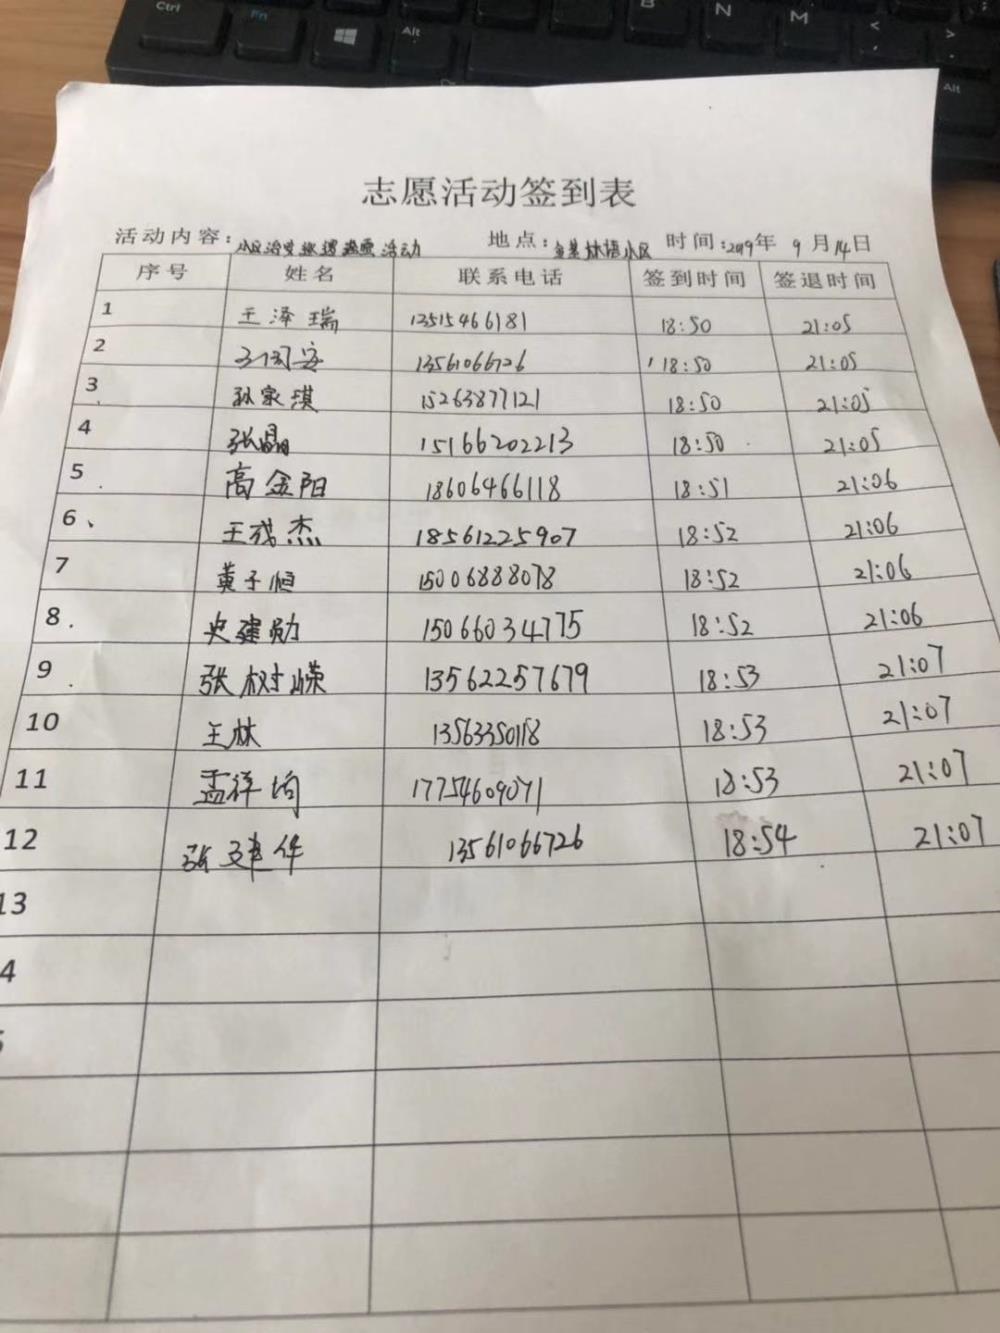 Ctrl
Fn
Alt
B
N
M
<
,
>
.
Alt
志愿活动签到表
活动内容:小区治安巡逻志愿活动 地点:金基林语小区 时间:2019年 9月14日
序号 姓名 联系电话 签到时间 签退时间
1 王泽瑞 13515466181 18:50 21:05
2 13561066726 18:50 21:05
3 孙家淇 15263877121 18:50 21:05
4 张晶 15166202213 18:50 21:05
5 高金阳 18606466118 18:51 21:06
6、 王成杰 18561225907 18:52 21:06
7 黄子恒 15006888078 18:52 21:06
8. 史建勋 15066034775 18:52 21:06
9 张树嵘 13562257679 18:53 21:07
10 王林 13563350118 18:53 21:07
11 孟祥均 17754609071 18:53 21:07
12 张建华 13561066726 18:54 21:07
13
4